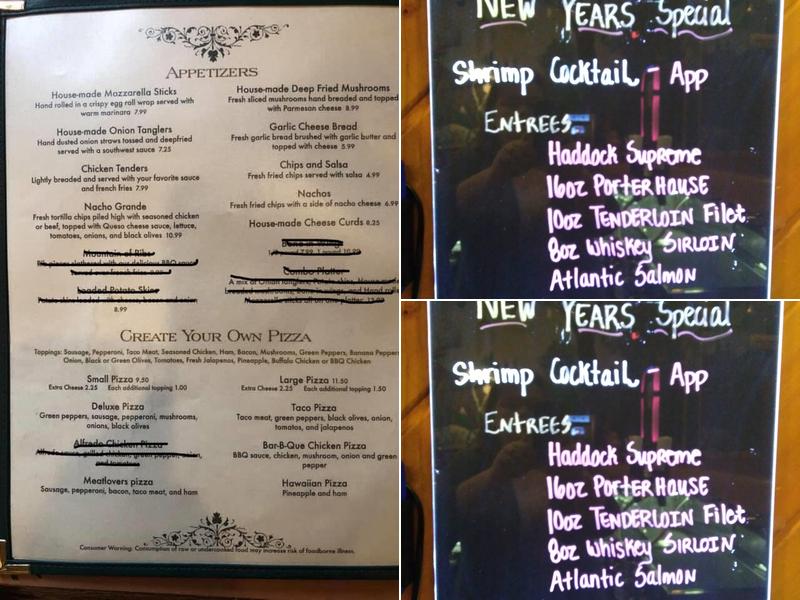 APPETIZERS
House-made Mozzarella Sticks
Hand rolled in a crispy egg roll wrap served with
warm marinara 7.99
House-made Onion Tanglers
Hand dusted onion straws tossed and deepfried
served with a southwest sauce 7.25
Chicken Tenders
Lightly breaded and served with your favorite sauce
and french fries 7.99
Nacho Grande
Fresh tortilla chips piled high with seasoned chicken
or beef, topped with Queso cheese sauce, lettuce,
tomatoes, onions, and black olives 10.99
Mountain of Ribs
Rib pieces slathered with our delicious BBQ sauce
Served over french fries 9.99
Loaded Potato Skins
Potato skins loaded with cheese, bacon and onion
8.99
House-made Deep Fried Mushrooms
Fresh sliced mushrooms hand breaded and topped
with Parmesan cheese 8.99
Garlic Cheese Bread
Fresh garlic bread brushed with garlic butter and
topped with cheese 5.99
Chips and Salsa
Fresh fried chips served with salsa 4.99
Nachos
Fresh fried chips with a side of nacho cheese 6.99
House-made Cheese Curds 8.25
Combo Platter
A mix of Onion Tanglers, Potato skins, House-made
Mozzarella sticks all on one platter
CREATE YOUR OWN PIZZA
Toppings: Sausage, Pepperoni, Taco Meat, Seasoned Chicken, Ham, Bacon, Mushrooms, Green Peppers, Banana Peppers
Onion, Black or Green Olives, Tomatoes, Fresh Jalapenos, Pineapple, Buffalo Chicken or BBQ Chicken
Small Pizza 9.50
Extra Cheese 2.25 Each additional topping 1.00
Deluxe Pizza
Green peppers, sausage, pepperoni, mushrooms,
onions, black olives
Alfredo Chicken Pizza
Alfredo sauce, grilled chicken, green pepper, onion,
and tomatoes
Meatlovers pizza
Sausage, pepperoni, bacon, taco meat, and ham
Large Pizza 11.50
Extra Cheese 2.25 Each additional topping 1.50
Taco Pizza
Taco meat, green peppers, black olives, onion,
tomatoes, and jalapenos
Bar-B-Que Chicken Pizza
BBQ sauce, chicken, mushroom, onion and green
pepper
Hawaiian Pizza
Pineapple and ham
Consumer Warning: Consumption of raw or undercooked food may increase risk of foodborne illness.
NEW YEARS Special
Shrimp Cocktail - App
ENTREES
Haddock Supreme
16oz PORTERHOUSE
10oz TENDERLOIN Filet
8oz Whiskey SIRLOIN
Atlantic Salmon
NEW YEARS Special
Shrimp Cocktail - App
ENTREES
Haddock Supreme
16oz PORTERHOUSE
10oz TENDERLOIN Filet
8oz Whiskey SIRLOIN
Atlantic Salmon